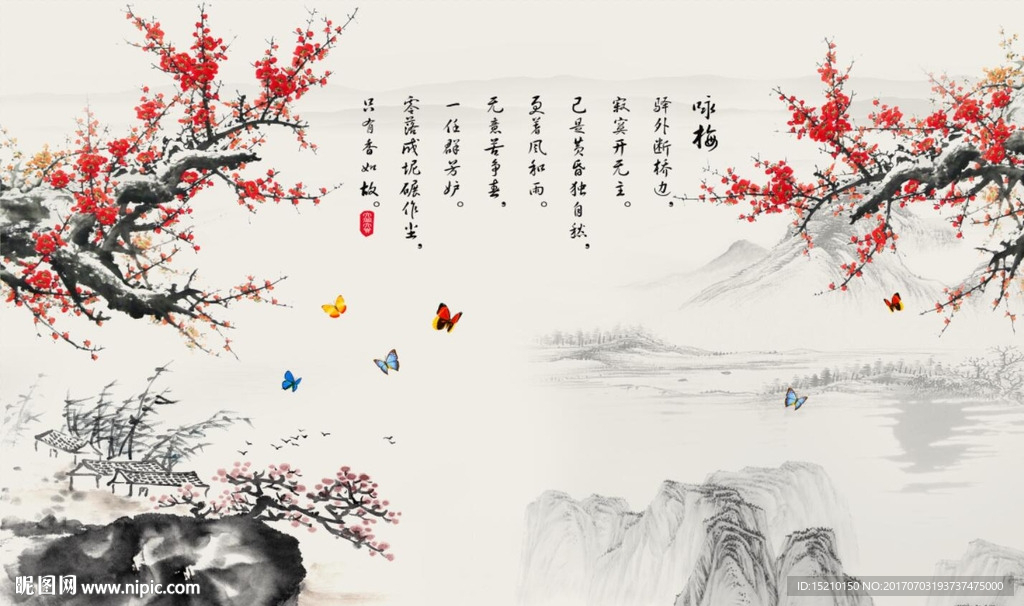 咏梅
驿外断桥边，
寂寞开无主。
已是黄昏独自愁，
更著风和雨。
无意苦争春，
一任群芳妒。
零落成泥碾作尘，
只有香如故。
昵图网 www.nipic.com
ID:15210150 NO:20170703193737475000